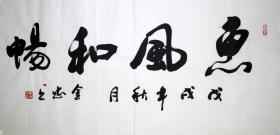 惠風和暢
戊戌年秋月 金忠